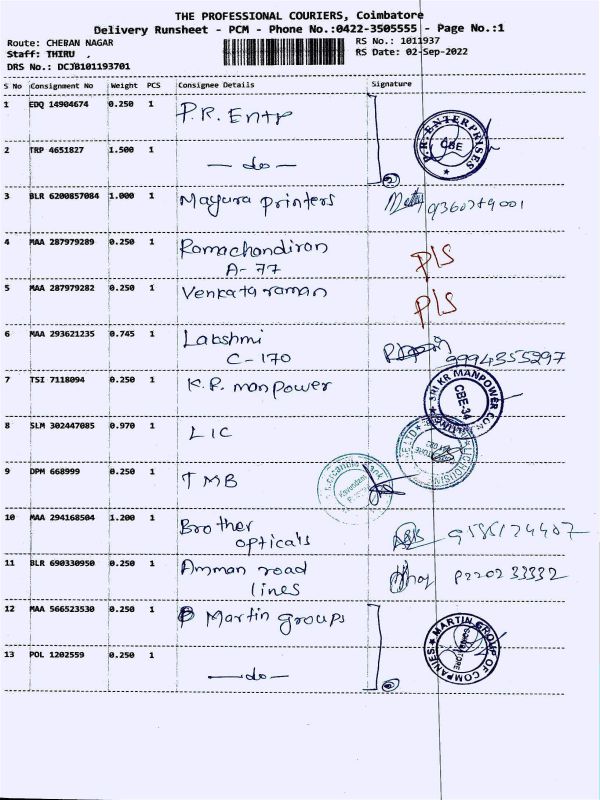 THE PROFESSIONAL COURIERS, Coimbatore
Delivery Runsheet - PCM - Phone No.:0422-3505555 - Page No.:1
Route: CHERAN NAGAR RS No.: 1011937
Staff: THIRU , RS Date: 02-Sep-2022
DRS No.: DCJB101193701
S No Consignment No Weight PCS Consignee Details Signature
1 EDQ 14904674 0.250 1 P.R. Entp
P.R. ENTERPRISES CBE
2 TRP 4651827 1.500 1 —do— 2
3 BLR 6200857084 1.000 1 Mayura printers
4 MAA 287979289 0.250 1 Ramachandiran P/S
A-77
5 MAA 287979282 0.250 1 Venkataraman P/S
6 MAA 293621235 0.745 1 Lakshmi
C-170 9994355297
7 TSI 7118094 0.250 1 K.R. manpower
SRI KR MANPOWER CON CBE-34
8 SLM 302447085 0.970 1 LIC
9 DPM 668999 0.250 1 TMB
10 MAA 294168504 1.200 1 Brother
opticals
11 BLR 690330950 0.250 1 Amman road
lines
12 MAA 566523530 0.250 1 Martin groups
MARTIN GROUP OF COMPANIES
13 POL 1202559 0.250 1 —do— 2